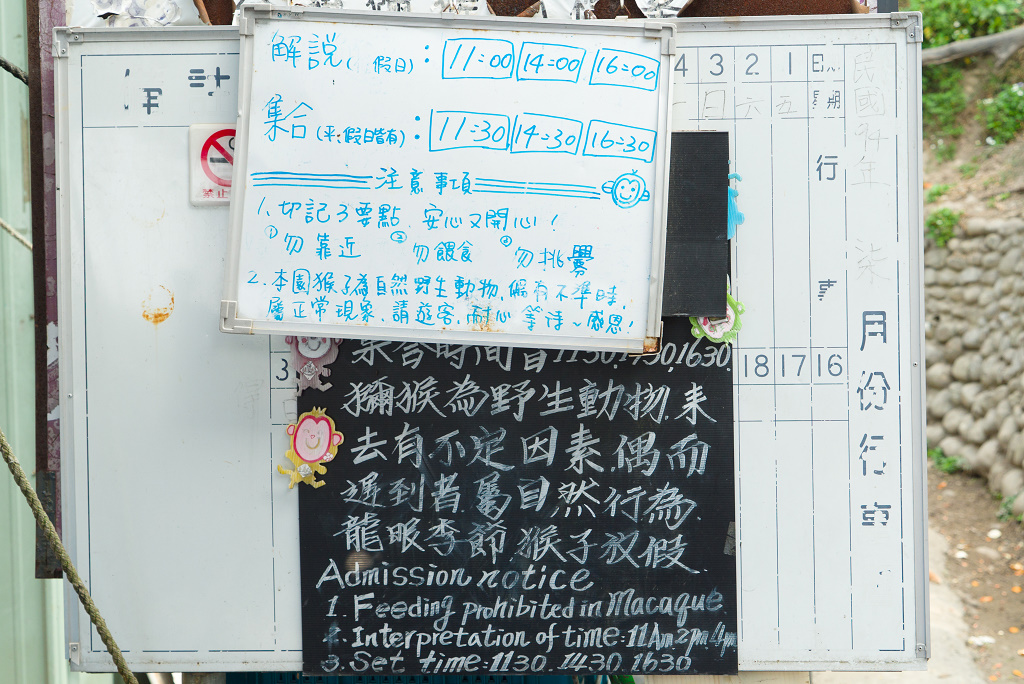 解說(假日):11:00 14:00 16:00
集合(平、假日皆有):11:30 14:30 16:30
注意事項
1.切記3要點,安心又開心!
①勿靠近 ②勿餵食 ③勿挑釁
2.本園猴子為自然野生動物,偶有不準時,
屬正常現象,請遊客耐心等待~感恩!
禁止
4 3 2 1 日
日 六 五 期
行
事
民國94年 柒 月份行事
3
18 17 16
集合時間皆1130,1430,1630.
獼猴為野生動物.來
去有不定因素.偶而
遲到者.屬自然行為.
龍眼季節.猴子放假.
Admission notice
1. Feeding prohibited in Macaque.
2. Interpretation of time:11Am.2pm.4pm
3. Set time:1130.1430.1630.